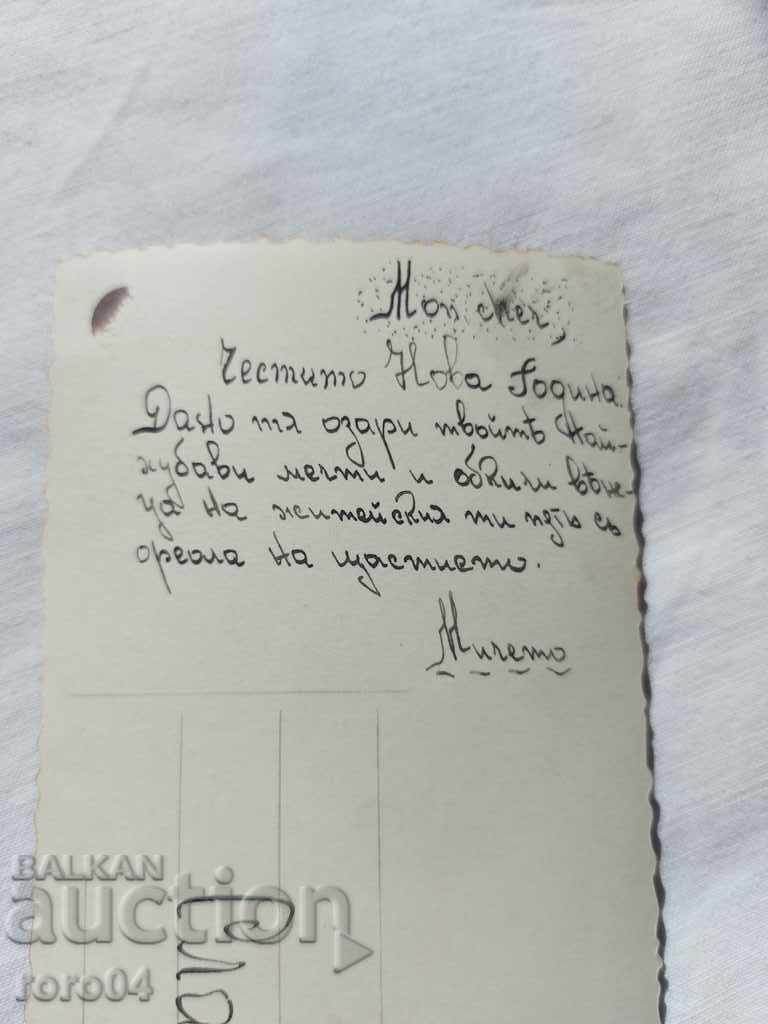 Mon cher,
Честито Нова Година.
Дано тя озари твоитѣ най-
хубави мечти и обкичи вѣне-
ца на житейския ти пѫть съ
ореола на щастието.
Мичето
BALKAN
auction
roro04